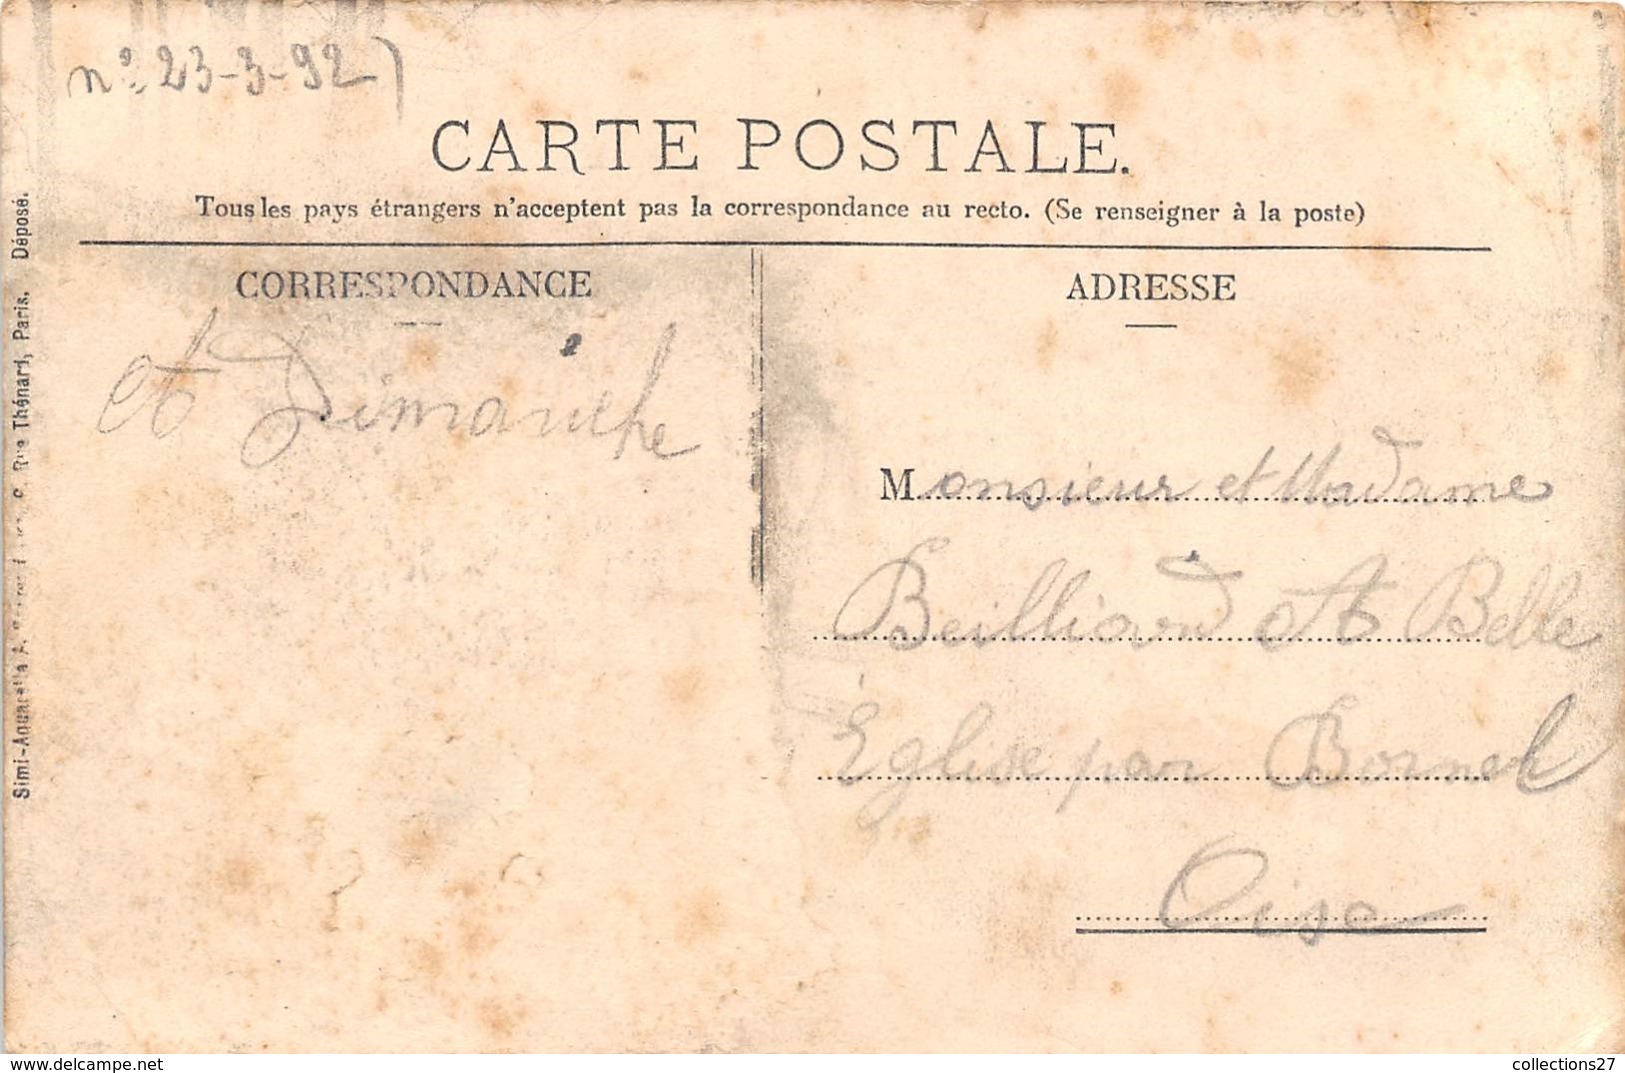 n°. 23-3-92)
CARTE POSTALE.
Tous les pays étrangers n'acceptent pas la correspondance au recto. (Se renseigner à la poste)
CORRESPONDANCE
A Dimanche
ADRESSE
Monsieur et Madame
Beilliard A Belle
Église par Bornel
Oise
Simi-Aquarelle A. Rue Thénard, Paris, Déposé.
www.delcampe.net
collections27